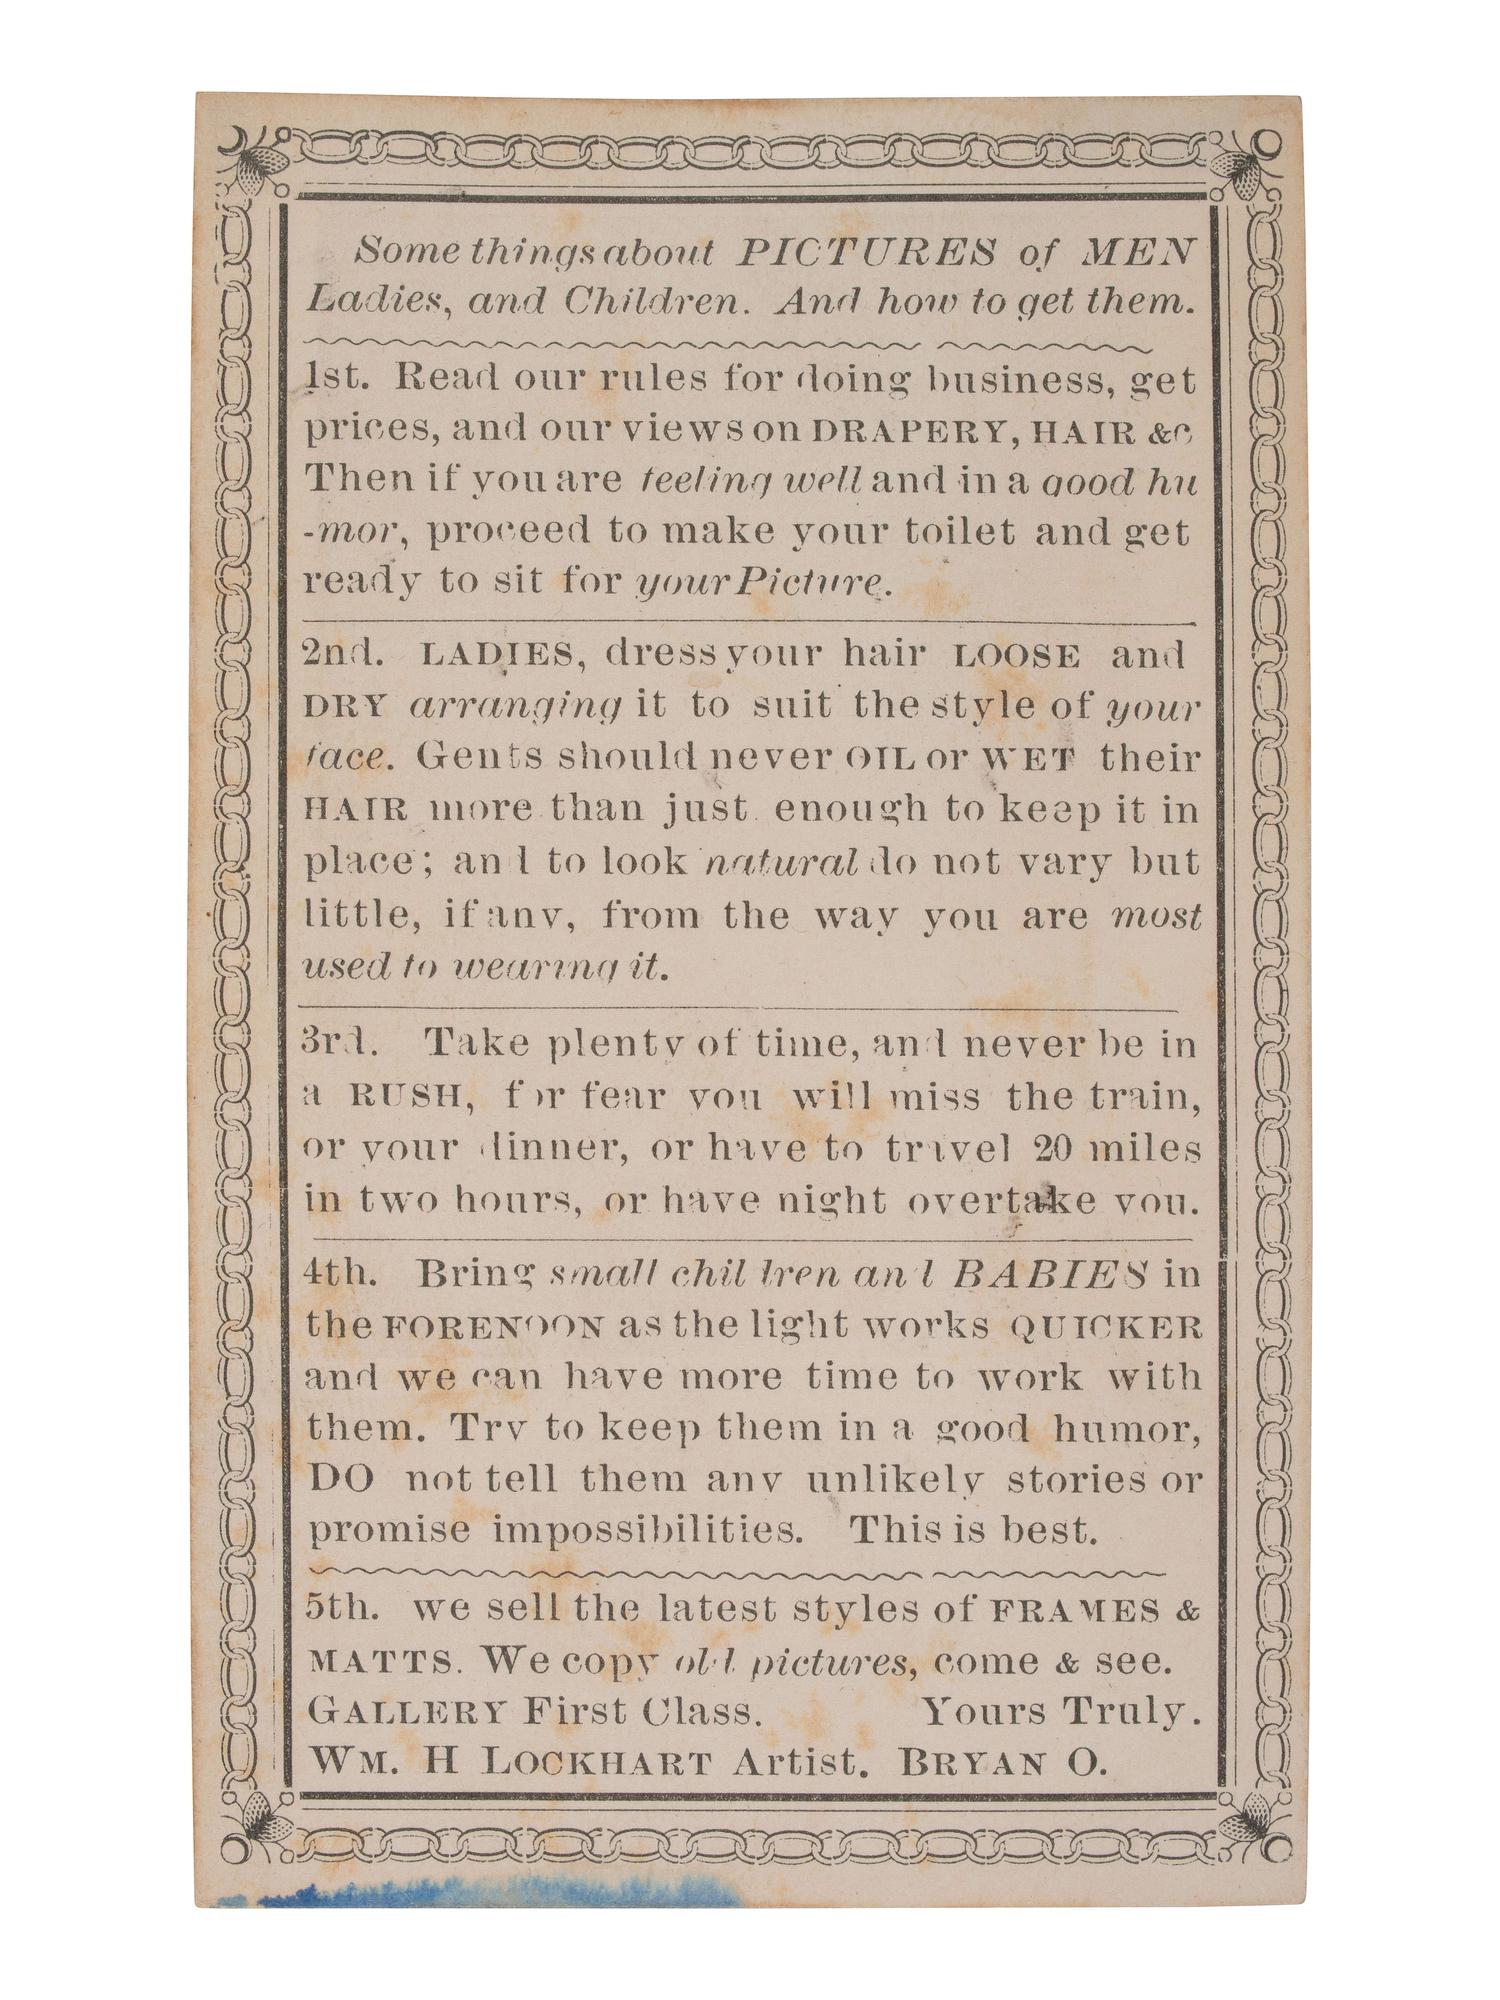 Some things about PICTURES of MEN
Ladies, and Children. And how to get them.
1st. Read our rules for doing business, get
prices, and our views on DRAPERY, HAIR &c
Then if you are feeling well and in a good hu
-mor, proceed to make your toilet and get
ready to sit for your Picture.
2nd. LADIES, dress your hair LOOSE and
DRY arranging it to suit the style of your
face. Gents should never OIL or WET their
HAIR more than just enough to keep it in
place; and to look natural do not vary but
little, if any, from the way you are most
used to wearing it.
3rd. Take plenty of time, and never be in
a RUSH, for fear you will miss the train,
or your dinner, or have to travel 20 miles
in two hours, or have night overtake you.
4th. Bring small children and BABIES in
the FORENOON as the light works QUICKER
and we can have more time to work with
them. Try to keep them in a good humor,
DO not tell them any unlikely stories or
promise impossibilities. This is best.
5th. we sell the latest styles of FRAMES &
MATTS. We copy old pictures, come & see.
GALLERY First Class. Yours Truly.
WM. H LOCKHART Artist. BRYAN O.